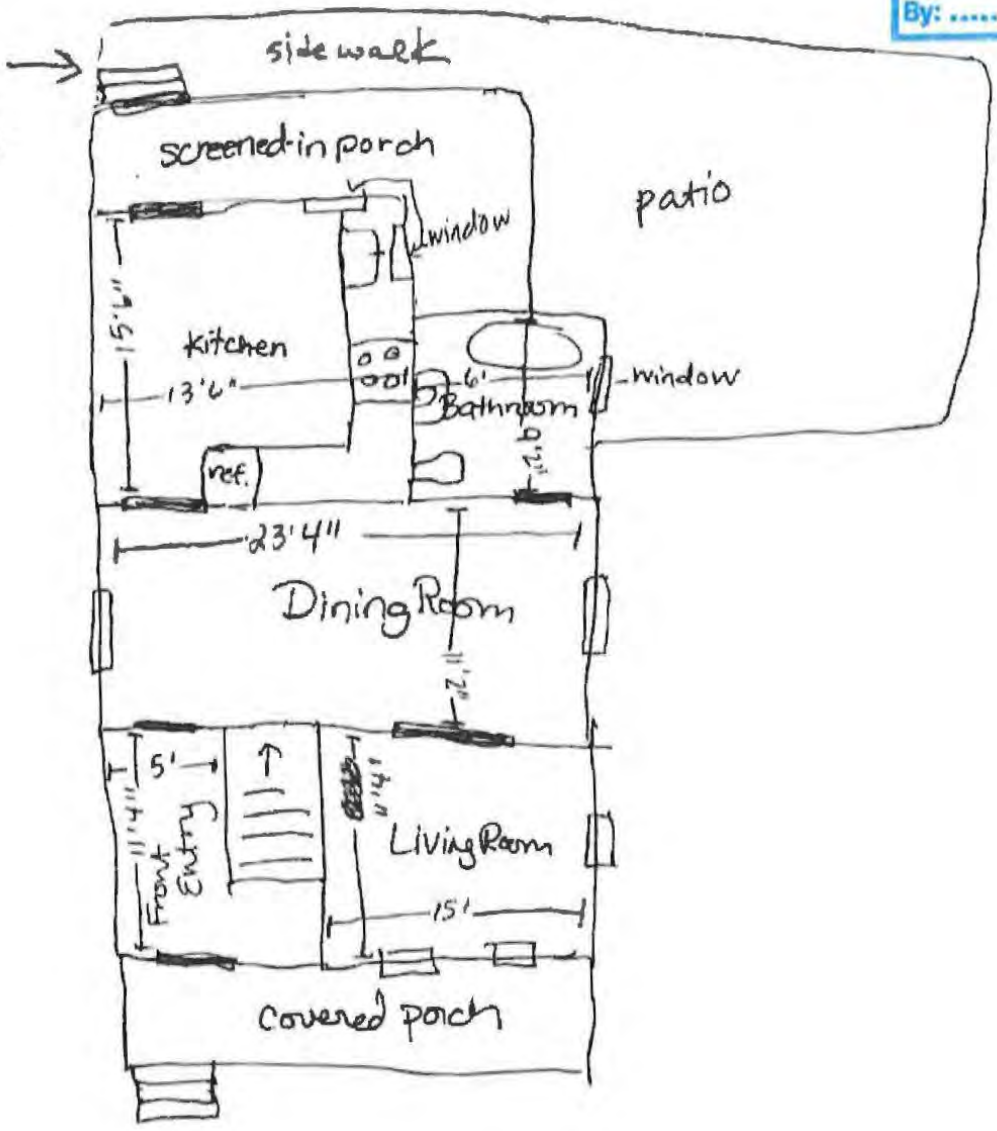 By: .....
side walk
screened-in porch
patio
window
15'6"
kitchen
13'6"
6'
window
Bathroom
9'2"
ref.
23'4"
Dining Room
11'2"
5'
11'4"
11'4"
Front
Entry
Living Room
15'
covered porch